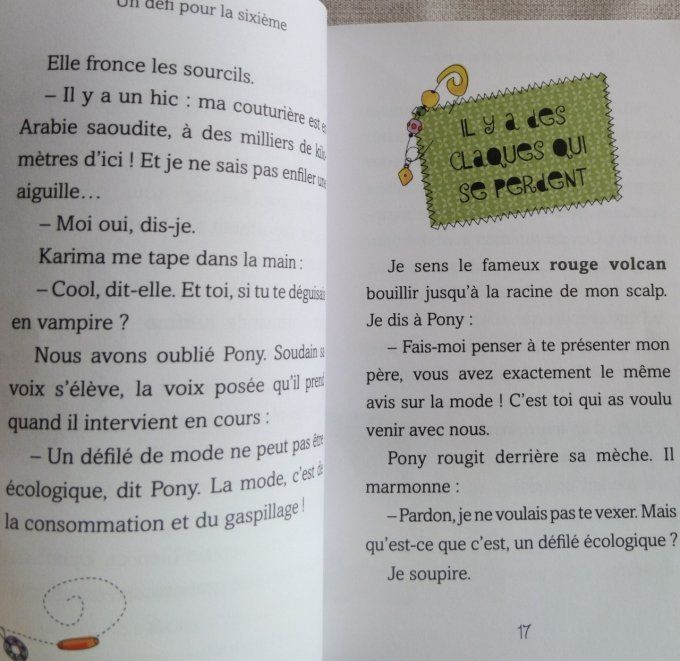 Un défi pour la sixième
Elle fronce les sourcils.
– Il y a un hic : ma couturière est
Arabie saoudite, à des milliers de kilo-
mètres d'ici ! Et je ne sais pas enfiler une
aiguille…
– Moi oui, dis-je.
Karima me tape dans la main :
– Cool, dit-elle. Et toi, si tu te déguisais
en vampire ?
Nous avons oublié Pony. Soudain sa
voix s'élève, la voix posée qu'il prend
quand il intervient en cours :
– Un défilé de mode ne peut pas être
écologique, dit Pony. La mode, c'est de
la consommation et du gaspillage !
IL Y A DES
CLAQUES QUI
SE PERDENT
Je sens le fameux rouge volcan
bouillir jusqu'à la racine de mon scalp.
Je dis à Pony :
– Fais-moi penser à te présenter mon
père, vous avez exactement le même
avis sur la mode ! C'est toi qui as voulu
venir avec nous.
Pony rougit derrière sa mèche. Il
marmonne :
– Pardon, je ne voulais pas te vexer. Mais
qu'est-ce que c'est, un défilé écologique ?
Je soupire.
17